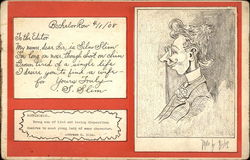 Bachelor Row 6/11/08
To the Editor
My name, dear Sir, is Silas Slim
I'm long on nose, though short on chin
I'm tired of a single life
I desire you to find a wife
for Yours Truly
S. Slim
Being one of kind and loving disposition
desires to meet young lady of same character.
Address S. Slim.